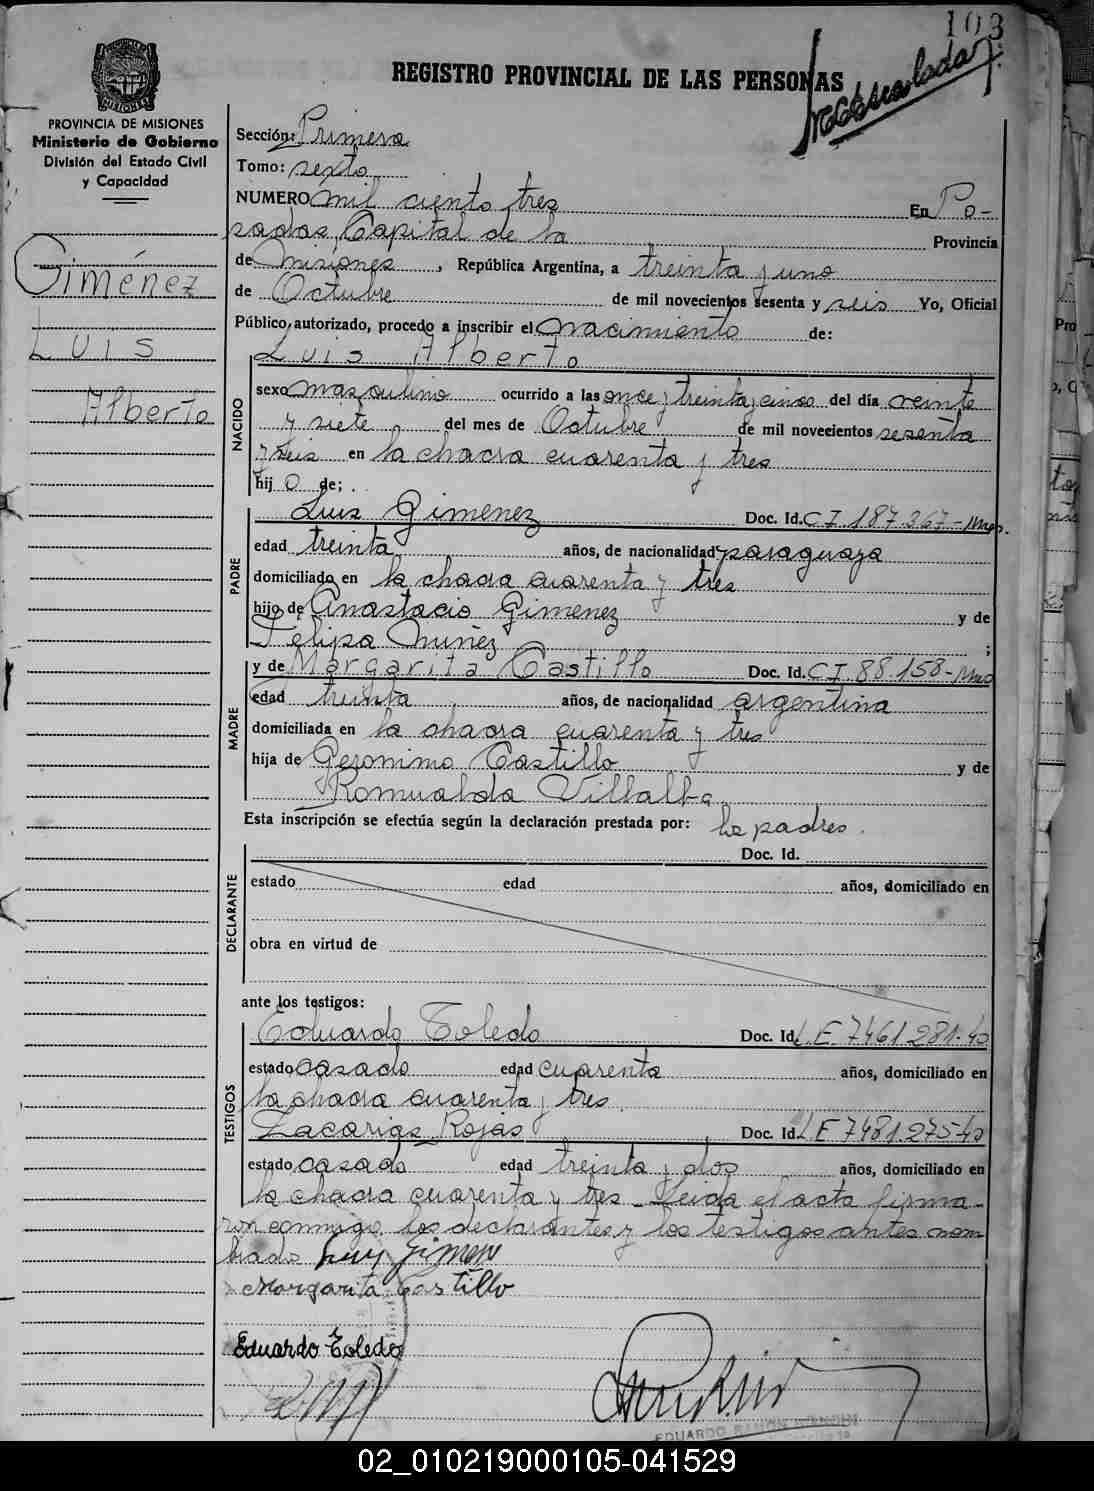 103
REGISTRO PROVINCIAL DE LAS PERSONAS
PROVINCIA DE MISIONES
Ministerio de Gobierno
División del Estado Civil
y Capacidad
Giménez
Luis
Alberto
Sección: Primera
Tomo: sexto
NUMERO mil ciento tres En Po-
sadas, Capital de la Provincia
de Misiones, República Argentina, a treinta y uno
de Octubre de mil novecientos sesenta y seis Yo, Oficial
Público autorizado, procedo a inscribir el nacimiento de:
Luis Alberto
NACIDO
sexo masculino ocurrido a las once y treinta y cinco del día veinte
y siete del mes de Octubre de mil novecientos sesenta
y seis en la chacra cuarenta y tres
hijo de;
PADRE
Luis Gimenez Doc. Id. C I 187.367-Mnes.
edad treinta años, de nacionalidad paraguaya
domiciliado en la chacra cuarenta y tres
hijo de Anastacio Gimenez y de
Felipa Nuñez ;
MADRE
y de Margarita Castillo Doc. Id. C I 88.158-Mnes
edad treinta años, de nacionalidad argentina
domiciliada en la chacra cuarenta y tres
hija de Geronimo Castillo y de
Romualda Villalba
Esta inscripción se efectúa según la declaración prestada por: los padres.
DECLARANTE
Doc. Id.
estado edad años, domiciliado en
obra en virtud de
ante los testigos:
TESTIGOS
Eduardo Toledo Doc. Id. L.E. 7461.281-40
estado casado edad cuarenta años, domiciliado en
la chacra cuarenta y tres.
Zacarias Rojas Doc. Id. L E 7481.275-40
estado casado edad treinta y dos años, domiciliado en
la chacra cuarenta y tres - Leida el acta firma-
ron conmigo, los declarantes y los testigos antes nom
brados Luis Gimene
Margarita Castillo
Eduardo Toledo
EDUARDO RAMON
02_010219000105-041529